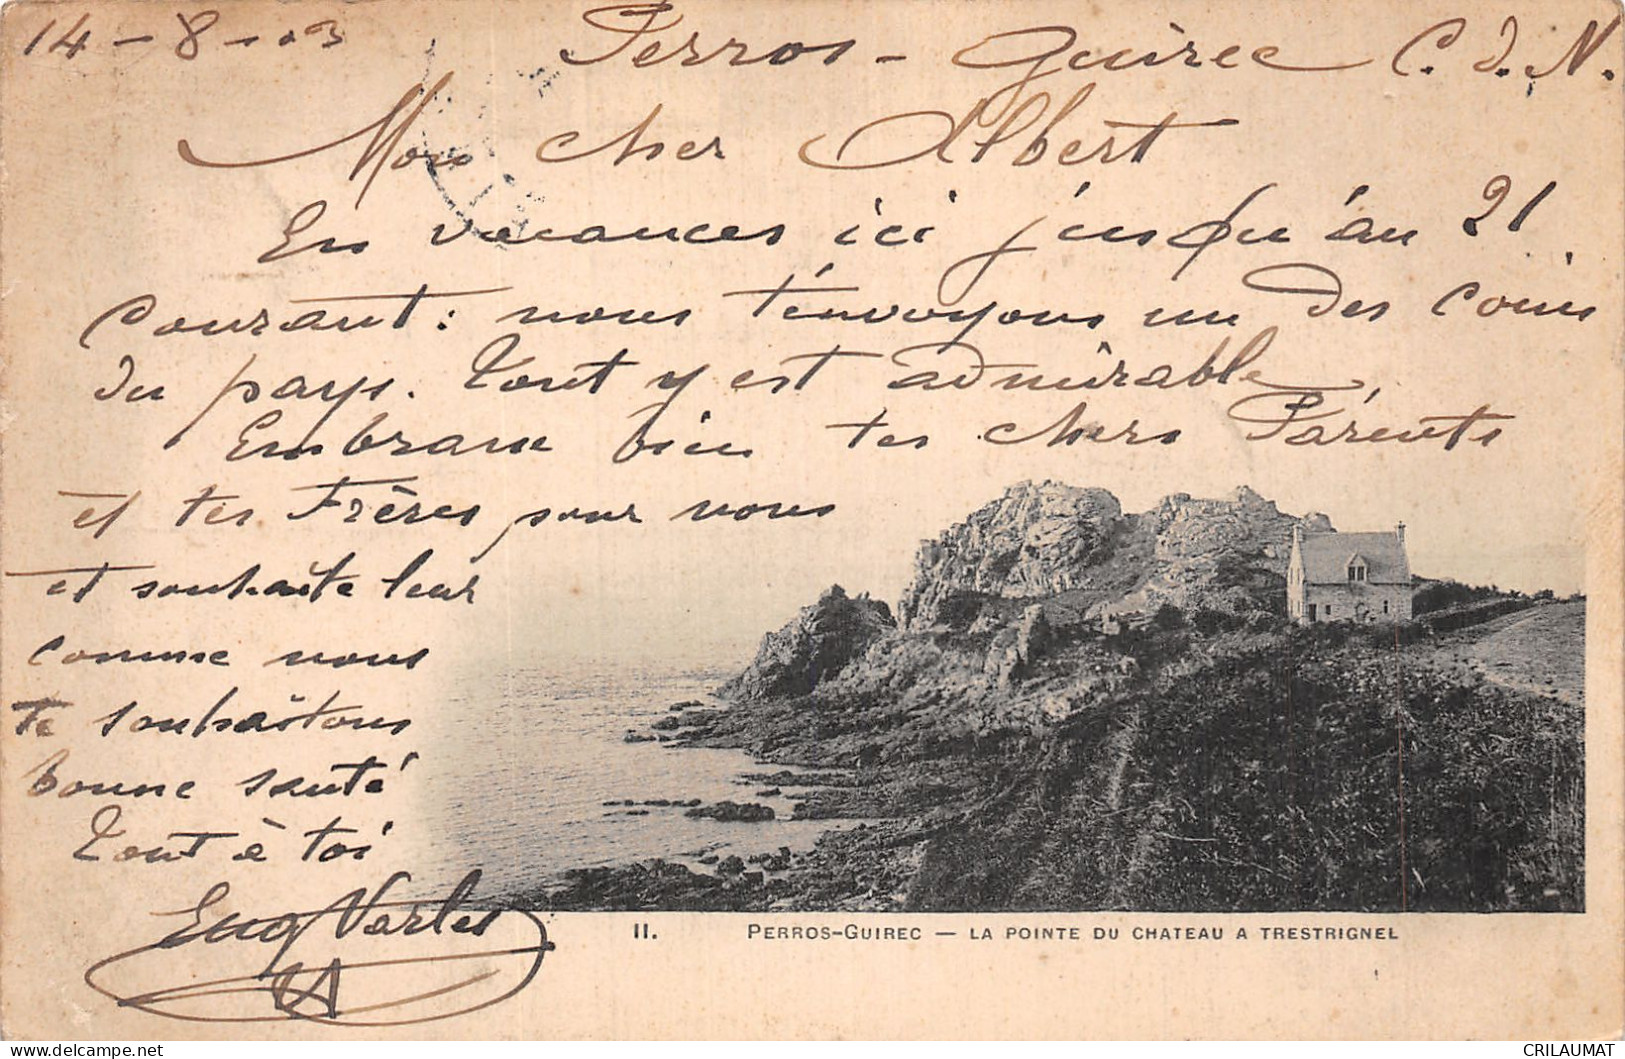 14-8-03 Perros-Guirec C.d.N.
Mon cher Albert
En vacances ici jusqu'au 21
courant : nous t'envoyons un des coins
du pays. Tout y est admirable
Embrasse bien tes chers Parents
et tes Frères pour nous
et souhaite leur
comme nous
te souhaitons
bonne santé
Tout à toi
Eug Varlet
II. PERROS-GUIREC — LA POINTE DU CHATEAU A TRESTRIGNEL
CRILAUMAT